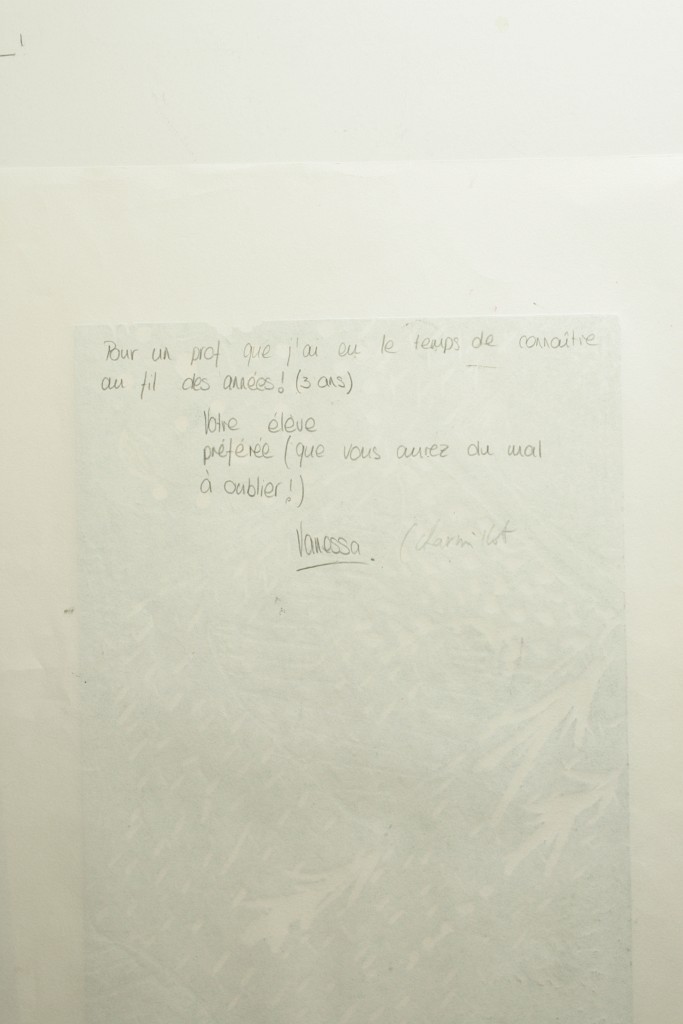 Pour un prof que j'ai eu le temps de connaître
au fil des années! (3 ans)
Votre élève
préférée (que vous aurez du mal
à oublier!)
Vanessa.